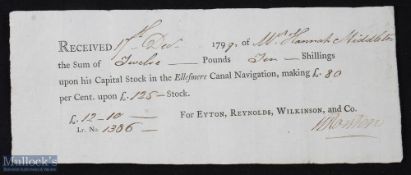 RECEIVED 17th Dec. 1799, of Mrs Hannah Middleton
the Sum of Twelve Pounds Ten Shillings
upon his Capital Stock in the Ellesmere Canal Navigation, making £. 80
per Cent. upon £. 125 Stock.
£. 12-10- For EYTON, REYNOLDS, WILKINSON, and Co.
Lr. No. 1386
Mullock's